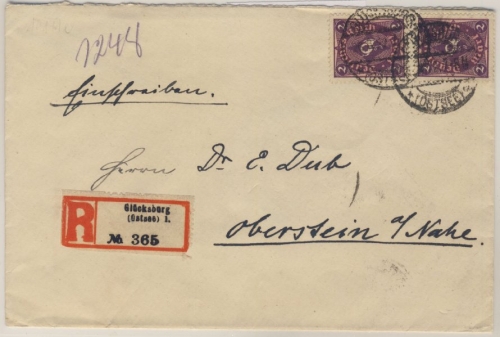 1244
Einschreiben.
Herrn Dr. E. Deub
Oberstein a/Nahe.
R
Glücksburg
(Ostsee) 1.
№ 365
2 2 2 2
(OSTSEE)